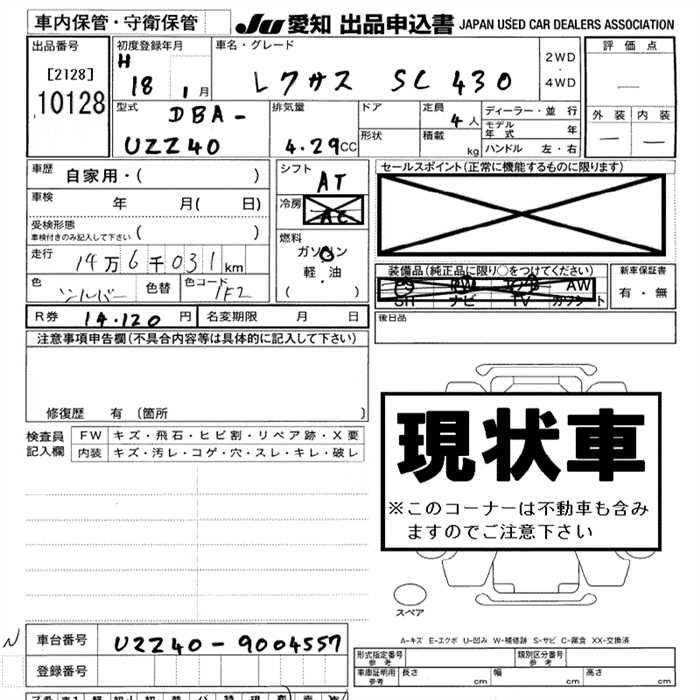 車内保管・守衛保管
JU 愛知 出品申込書 JAPAN USED CAR DEALERS ASSOCIATION
出品番号 初度登録年月 車名・グレード 2WD ・ 4WD 評価点
[2128] H
10128 18 1月 レクサス SC 430
型式 排気量 ドア 定員 ディーラー・並行 外装 内装
DBA- 4人 モデル年式 年
UZZ40 4.29CC 形状 積載 kg ハンドル 左・右
車歴 自家用・( )
シフト AT
セールスポイント(正常に機能するものに限ります)
車検 年 月( 日)
冷房 AC
受検形態 車検付きのみ記入して下さい ( )
燃料 ガソリン
軽・油
( )
走行 14万6千031km
装備品(純正品に限り○をつけてください) 新車保証書
PS PW エアB AW 有・無
SR ナビ TV カワシート
色 シルバー 色替 色コード 1F2
R券 14.120円 名変期限 月 日
後日品
注意事項申告欄(不具合内容等は具体的に記入して下さい)
修復歴 有〔箇所 〕
検査員記入欄 FW キズ・飛石・ヒビ割・リペア跡・X要
内装 キズ・汚レ・コゲ・穴・スレ・キレ・破レ
現状車
※このコーナーは不動車も含み
ますのでご注意下さい
スペア
A-キズ E-エクボ U-凹み W-補修跡 S-サビ C-腐食 XX-交換済
N 車台番号 UZZ40-9004557
登録番号
形式指定番号 参考 類別区分番号 参考
車庫証明用 参考 長さ cm 幅 cm 高さ cm